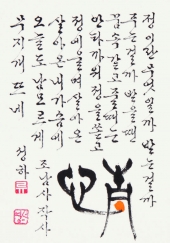 정이란 무엇일까 받는걸까
주는걸까 받을땐
꿈속같고 줄때는
안타까워 정을쏟고
정에울며 살아온
살아온 내가슴에
오늘도 남모르게
무지개 뜨네
조남사 작사
청하
情